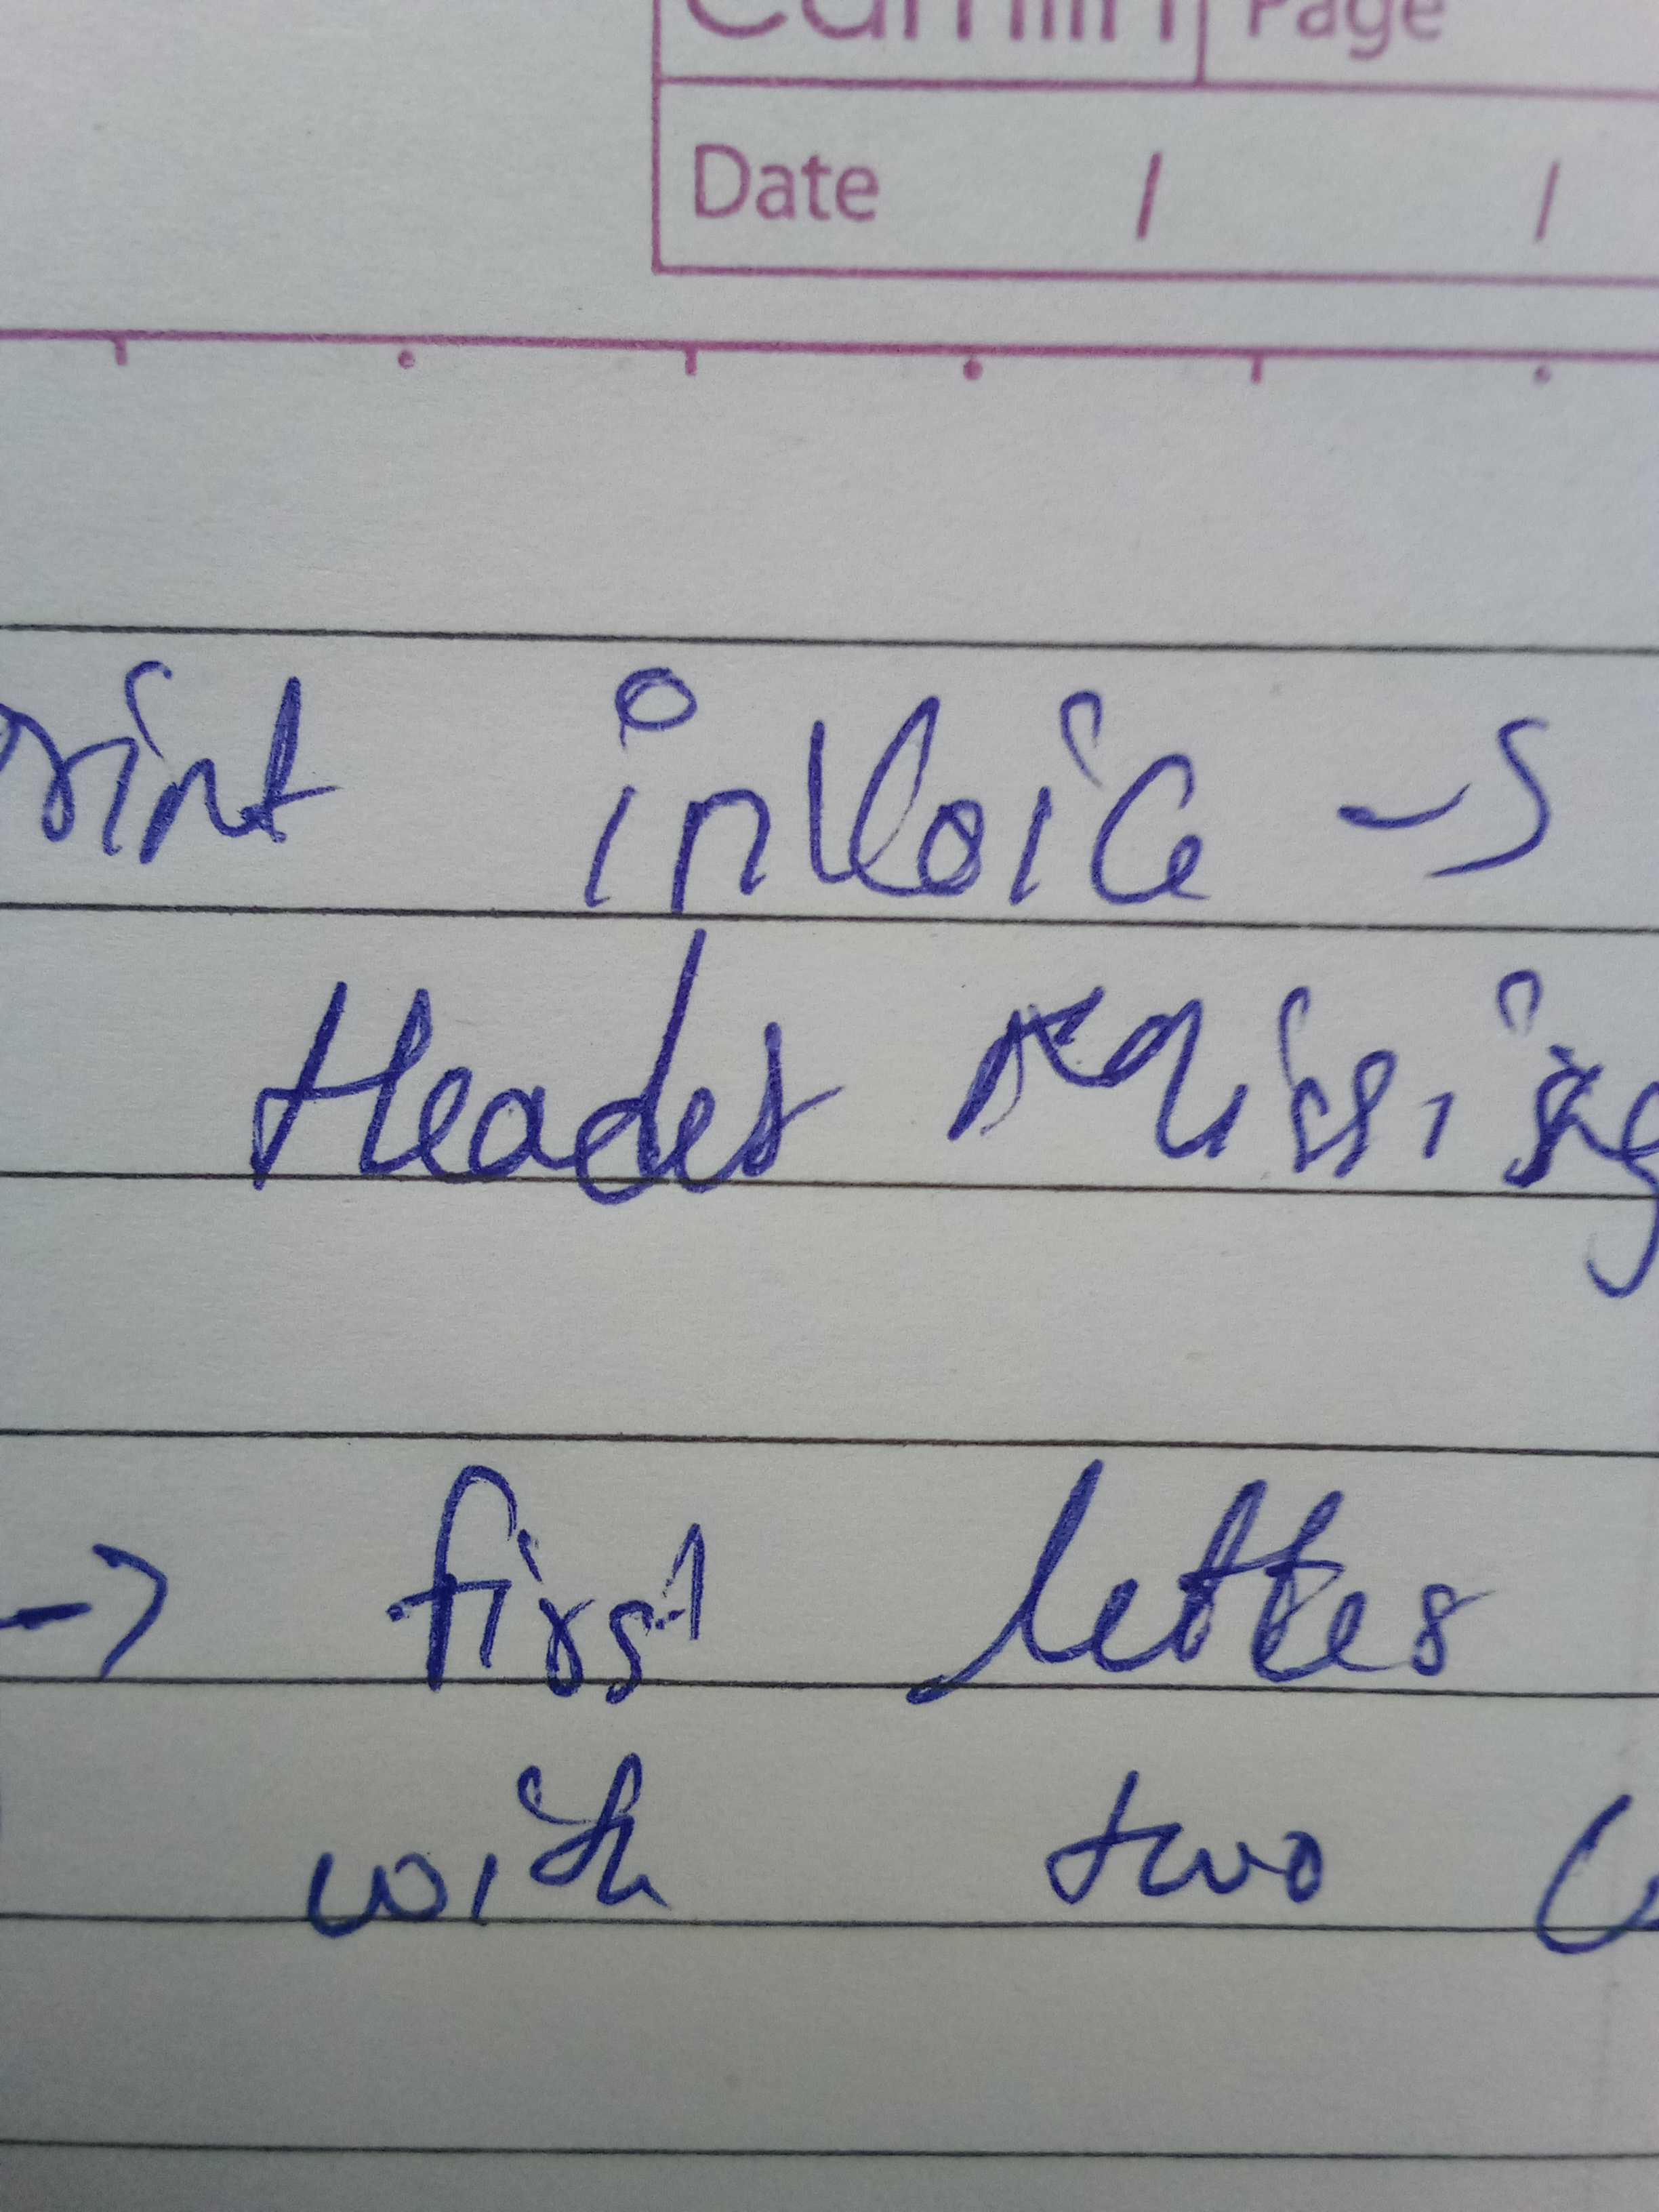 Camlin Page
Date / /
rint invoice →
Header missing
→ first letter
with two